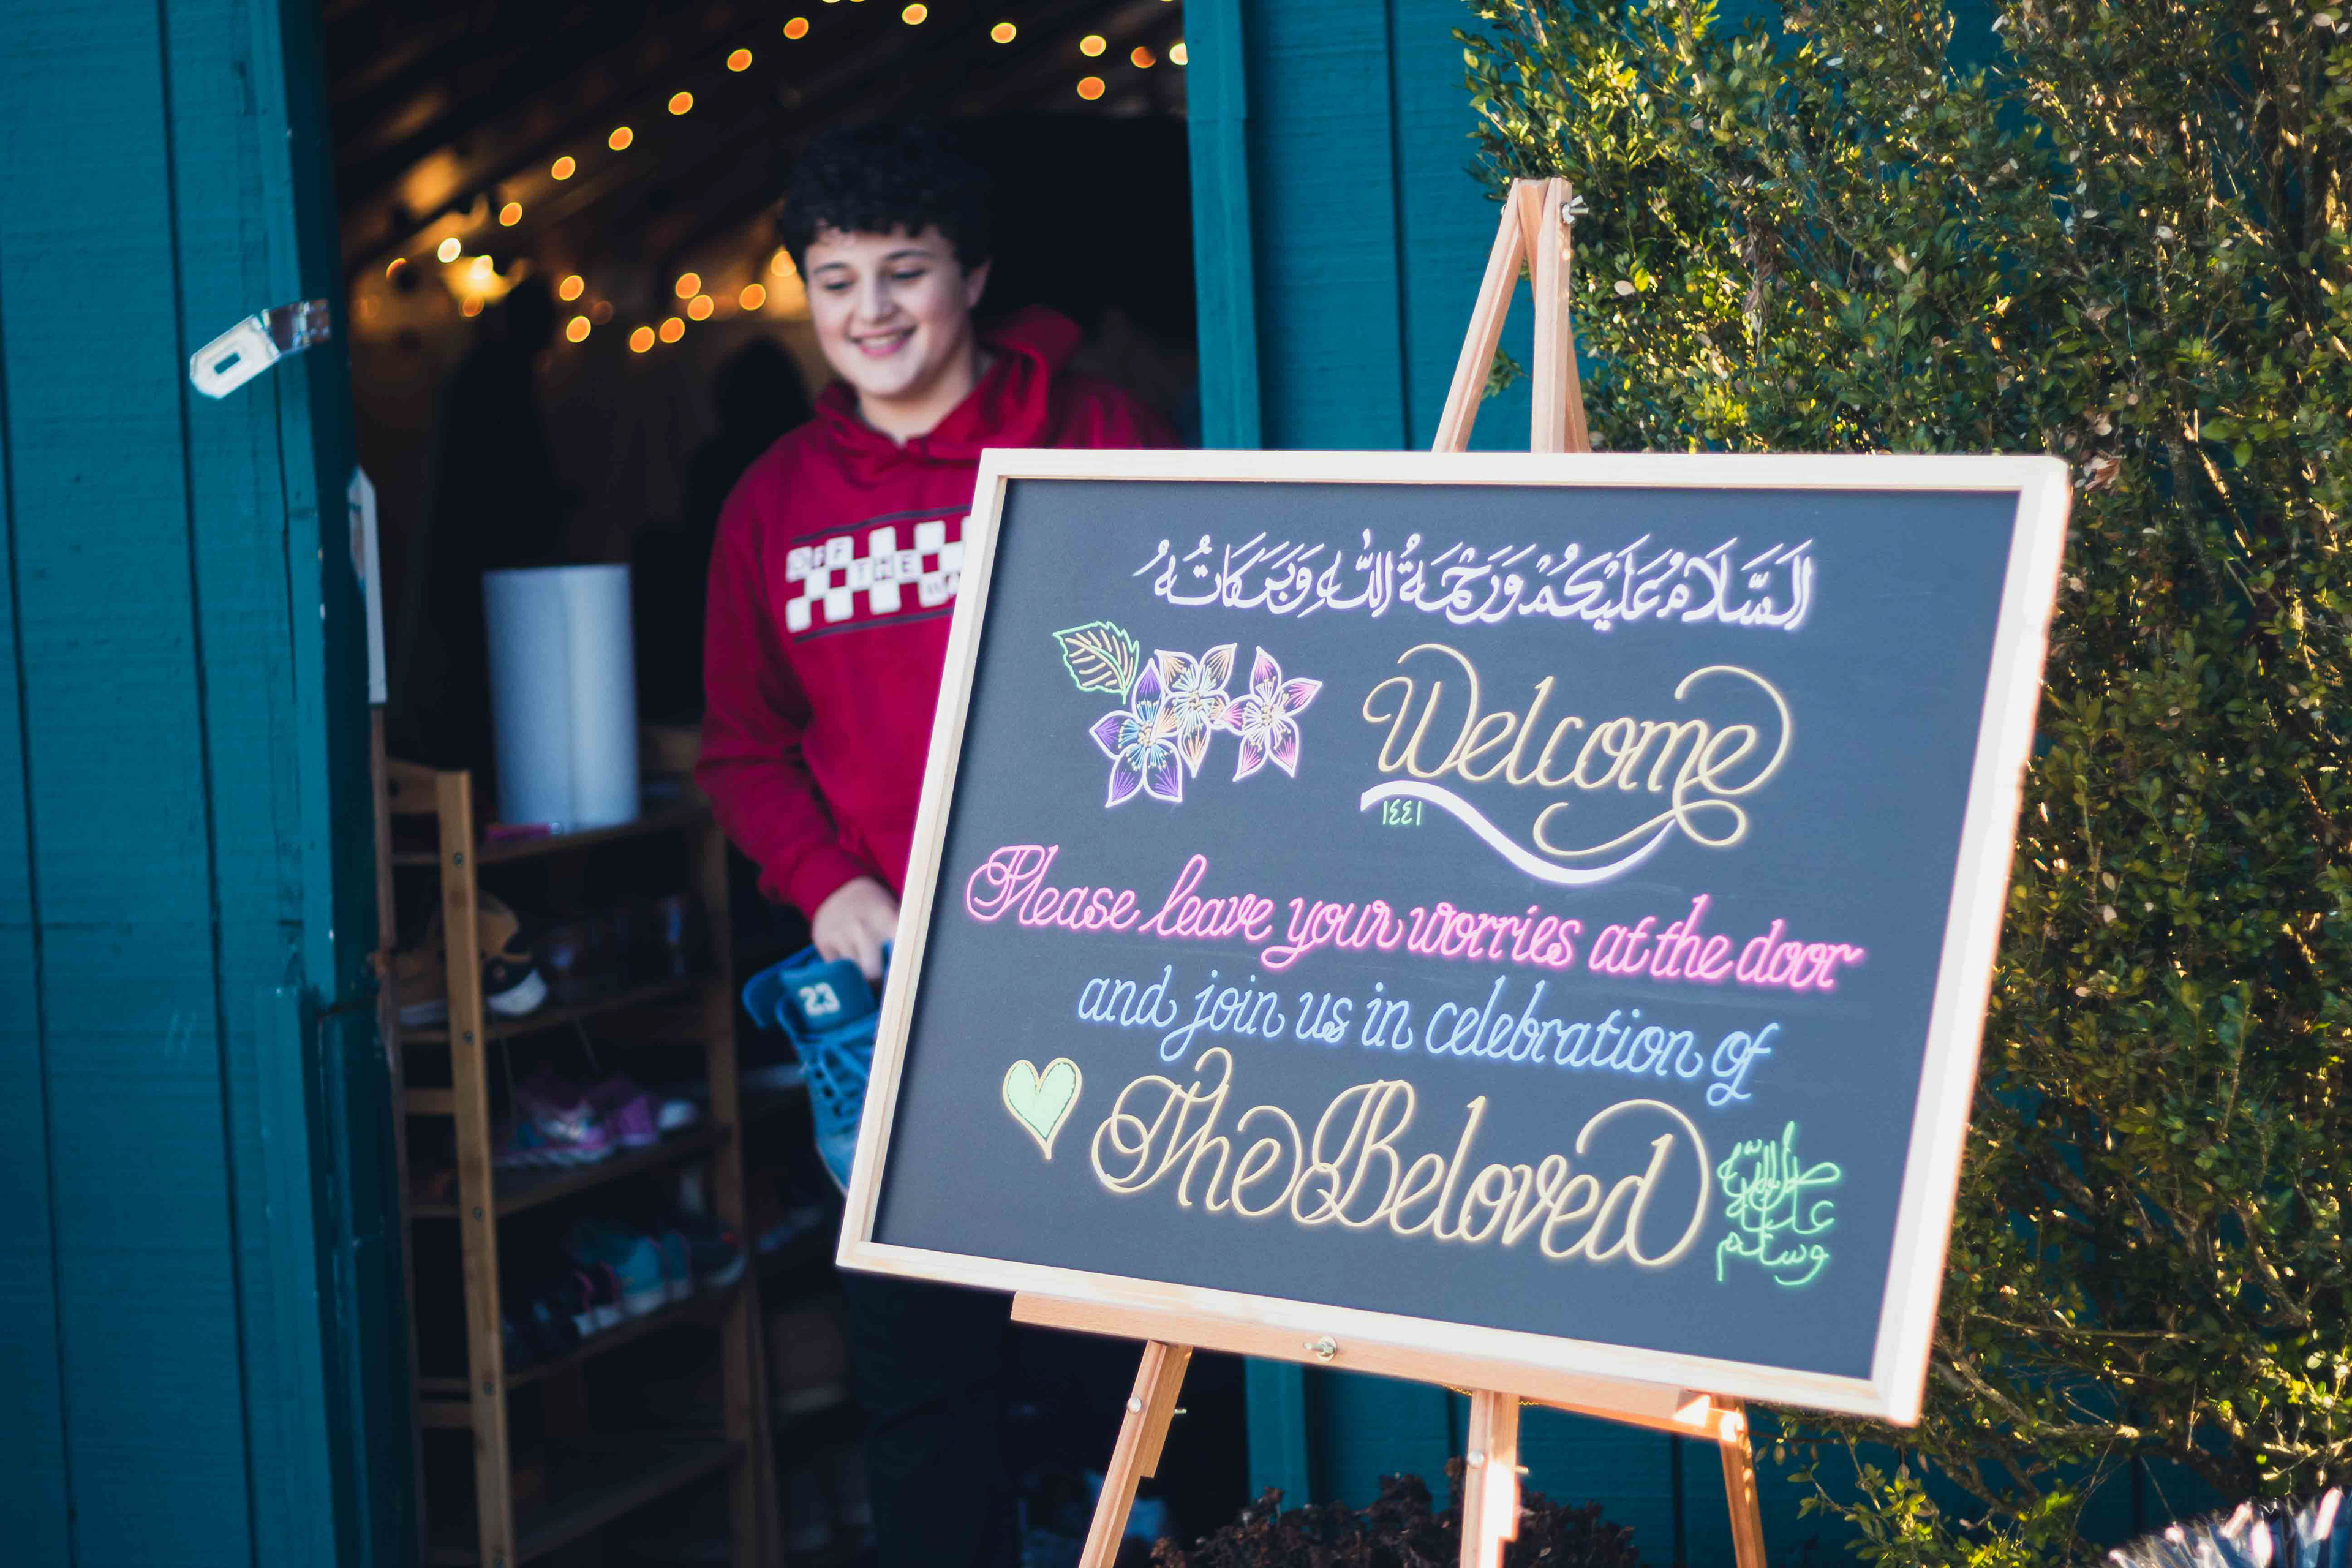 السَّلَامُ عَلَيْكُمْ وَرَحْمَةُ اللَّهِ وَبَرَكَاتُهُ
Welcome
١٤٤١
Please leave your worries at the door
and join us in celebration of
The Beloved
صلى الله
عليه
وسلم
OFF
THE
23